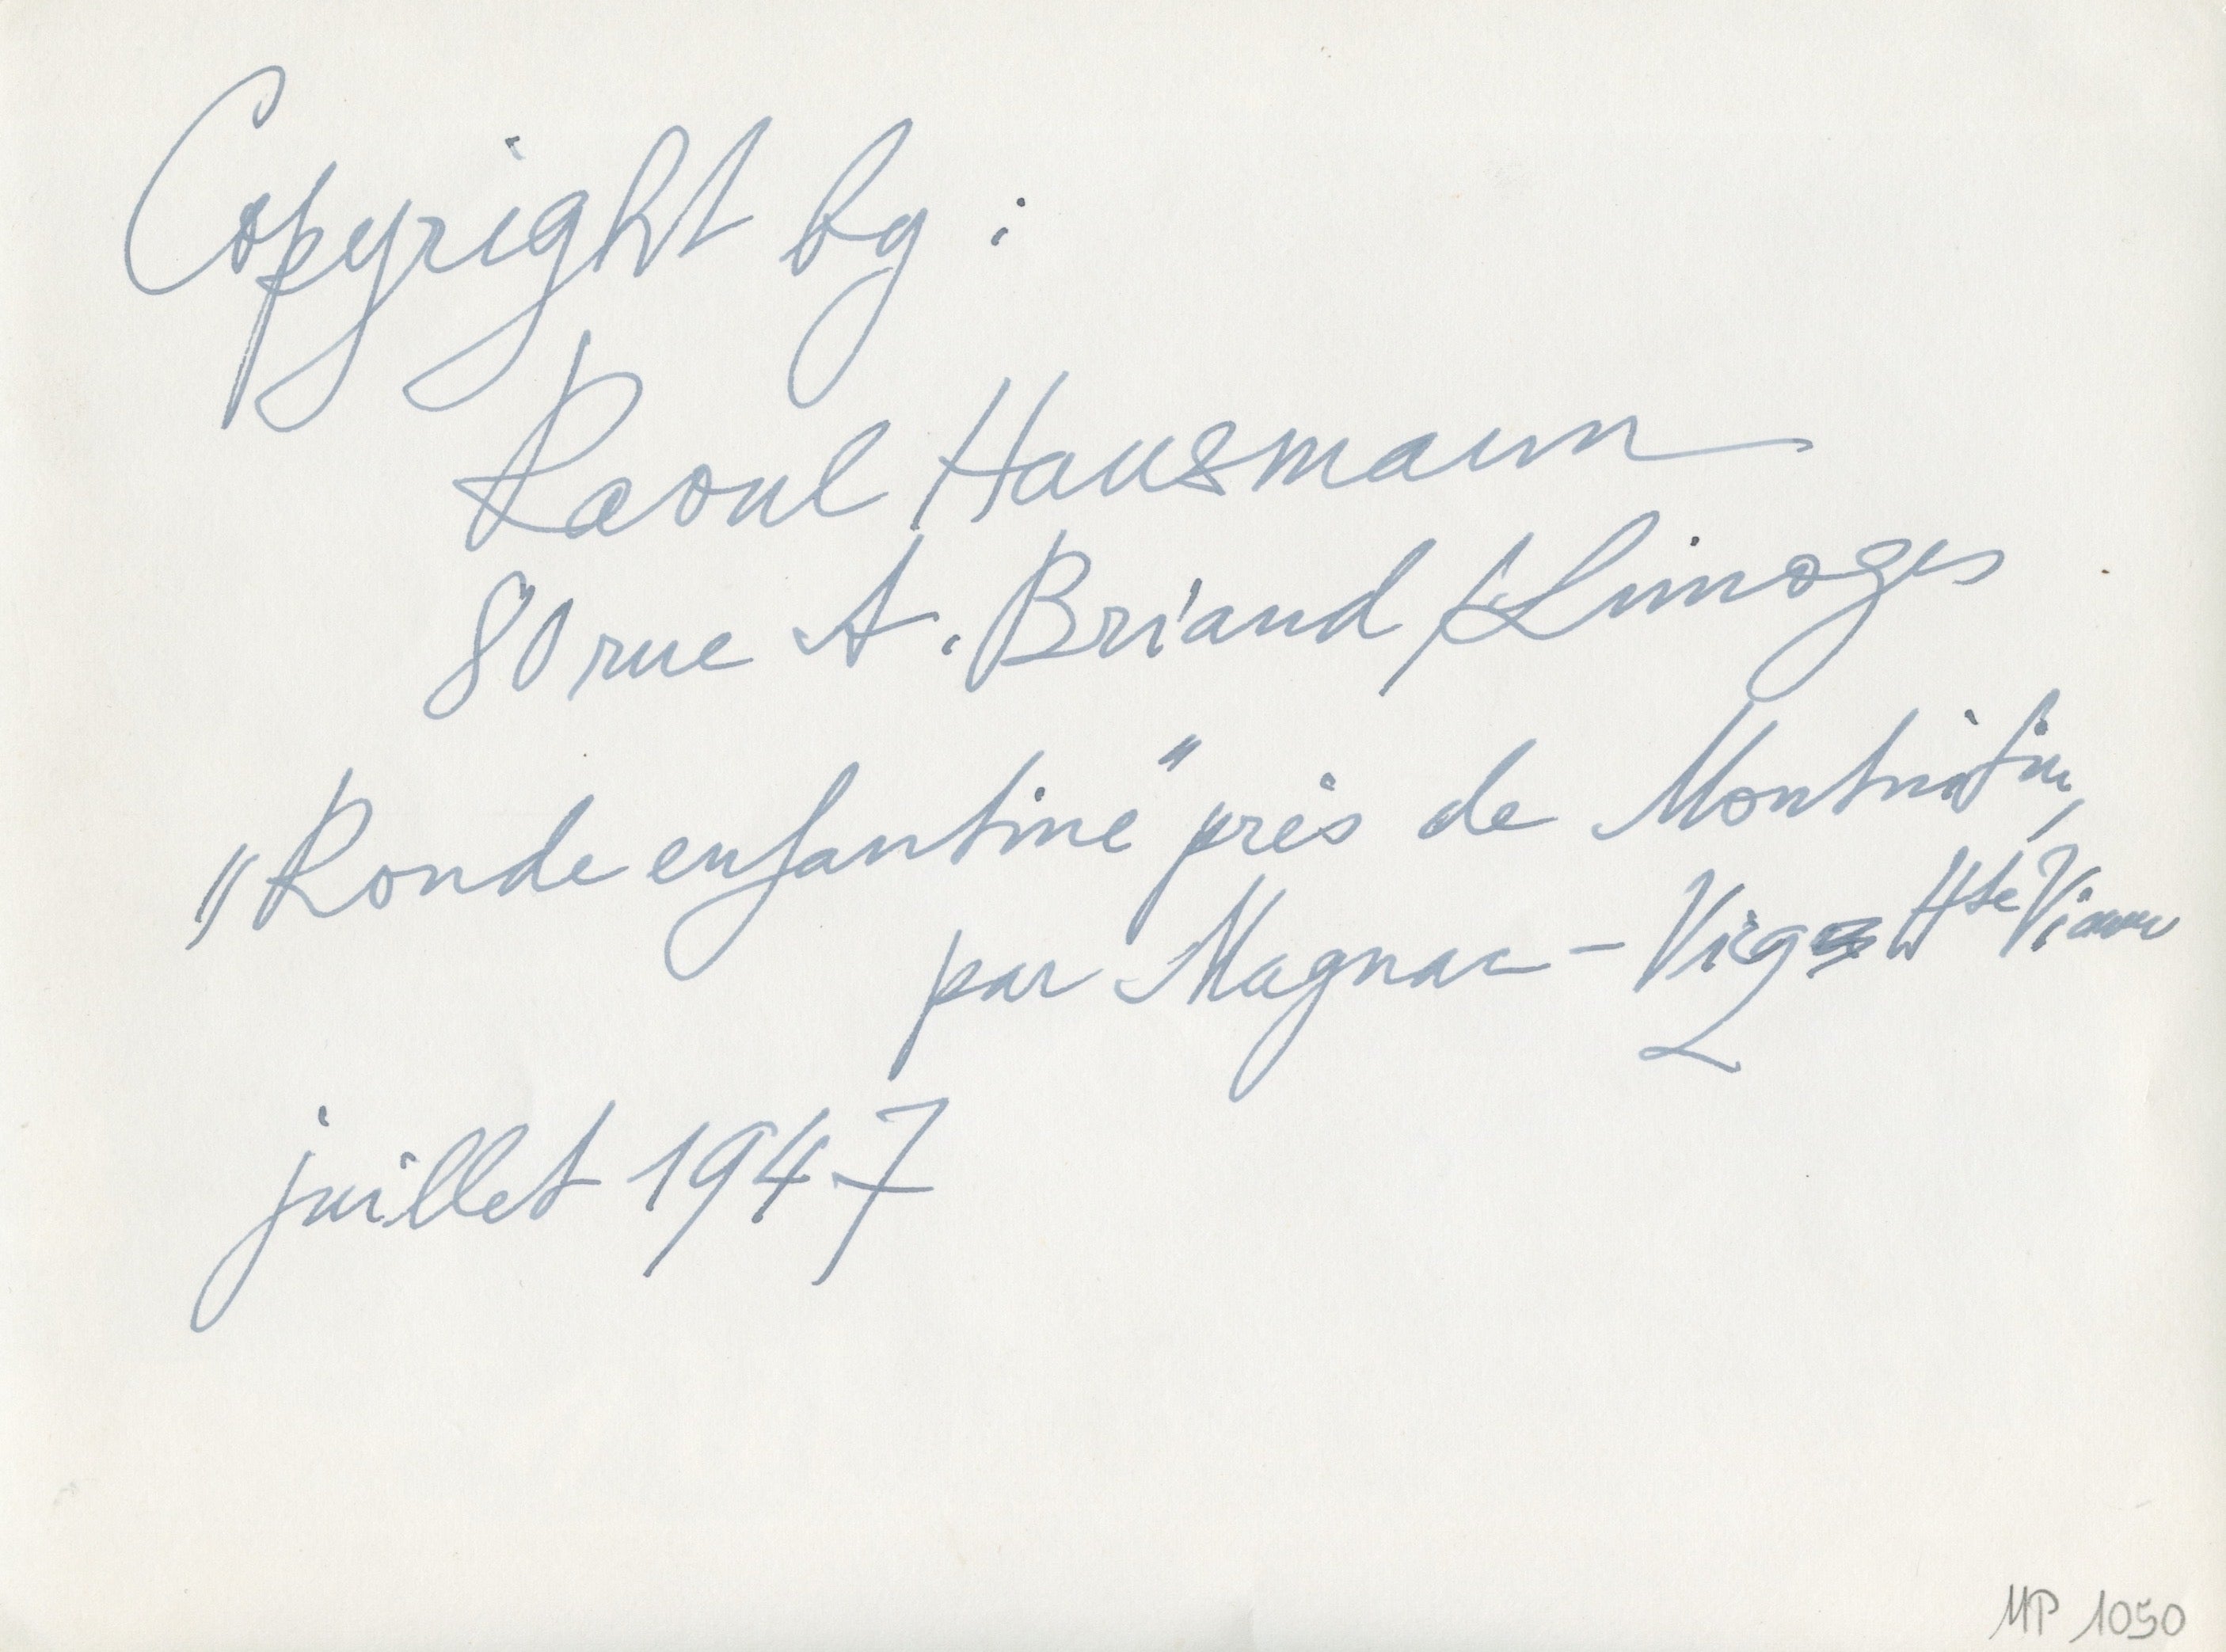 Copyright by :
Raoul Hausmann
80 rue A. Briand / Limoges
"Ronde enfantine" près de
par Magnac - Hte Vienne
juillet 1947
MP 1050